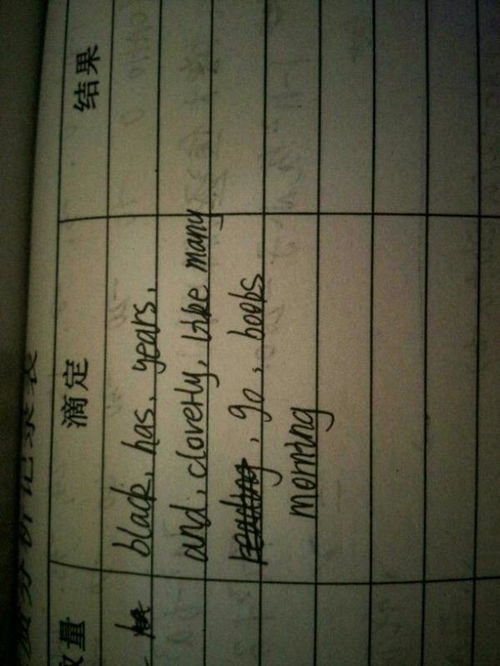 分析记录表
量 滴定 结果
black, has, years,
and, cloverly, like many
go, books
morning